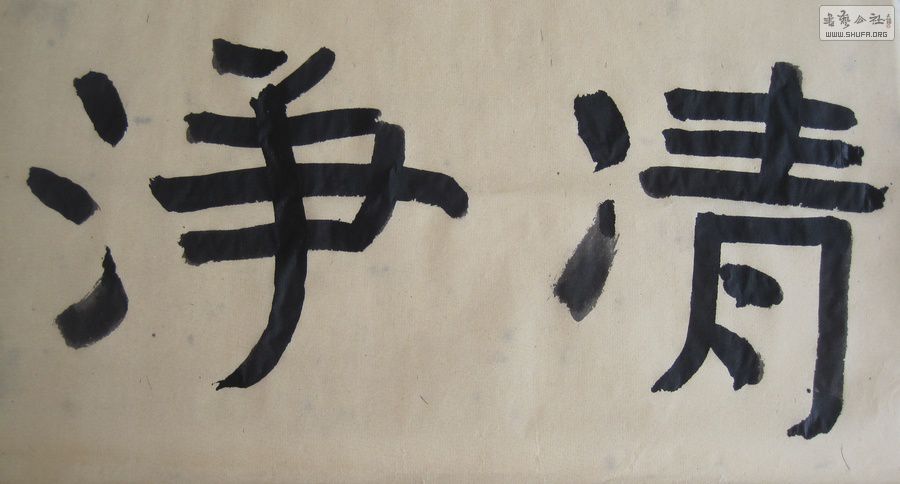 清淨
書藝公社
WWW.SHUFA.ORG